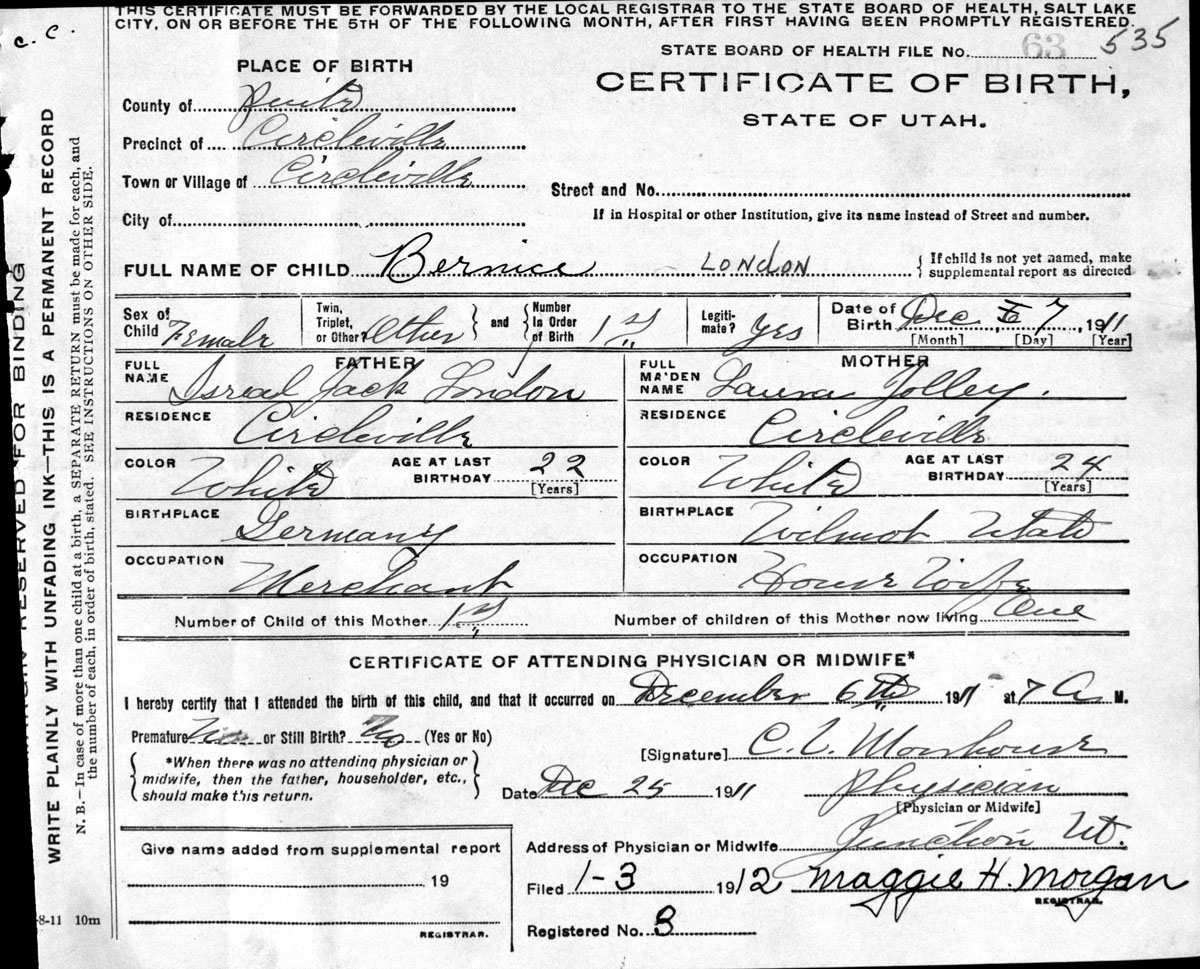 THIS CERTIFICATE MUST BE FORWARDED BY THE LOCAL REGISTRAR TO THE STATE BOARD OF HEALTH, SALT LAKE
CITY, ON OR BEFORE THE 5TH OF THE FOLLOWING MONTH, AFTER FIRST HAVING BEEN PROMPTLY REGISTERED.
C. C.
STATE BOARD OF HEALTH FILE No. 63 535
PLACE OF BIRTH
CERTIFICATE OF BIRTH,
STATE OF UTAH.
County of
Precinct of Circleville
Town or Village of Circleville
Street and No.
City of
If in Hospital or other Institution, give its name instead of Street and number.
FULL NAME OF CHILD Bernice LONDON
If child is not yet named, make
supplemental report as directed
Sex of Child Female
Twin, Triplet, or Other? Other
and Number in Order of Birth 1st
Legiti-mate? Yes
Date of Birth Dec 7, 1911
[Month] [Day] [Year]
FATHER
FULL NAME Isreal Jack London
MOTHER
FULL MAIDEN NAME Laura Jolley.
RESIDENCE Circleville
RESIDENCE Circleville
COLOR White AGE AT LAST BIRTHDAY 22 [Years]
COLOR White AGE AT LAST BIRTHDAY 24 [Years]
BIRTHPLACE Germany
BIRTHPLACE Wilmot Utah
OCCUPATION Merchant
OCCUPATION House Wife
Number of Child of this Mother 1st
Number of children of this Mother now living One
CERTIFICATE OF ATTENDING PHYSICIAN OR MIDWIFE*
I hereby certify that I attended the birth of this child, and that it occurred on December 6th 1911 at 7 A M.
Premature No or Still Birth? No (Yes or No)
*When there was no attending physician or
midwife, then the father, householder, etc.,
should make this return.
[Signature] C. L.
Date Dec 25 1911 Physician
[Physician or Midwife]
Address of Physician or Midwife Junction Ut.
Give name added from supplemental report
19
REGISTRAR.
Filed 1-3 1912 Maggie H. Morgan
REGISTRAR.
Registered No. 8
-8-11 10m
MARGIN RESERVED FOR BINDING
WRITE PLAINLY WITH UNFADING INK—THIS IS A PERMANENT RECORD
N. B.—In case of more than one child at a birth, a SEPARATE RETURN must be made for each, and
the number of each, in order of birth, stated. SEE INSTRUCTIONS ON OTHER SIDE.